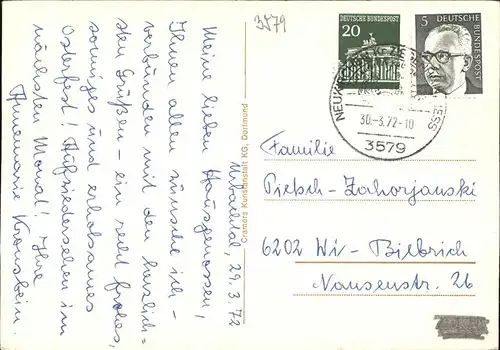 3579
Urbachtal, 29.3.72
Meine lieben Hausgenossen,
Ihnen allen wünsche ich –
verbunden mit den herzlich=
sten Grüßen – ein recht frohes,
sonniges und erholsames
Osterfest! Aufwiedersehen im
nächsten Monat! Ihre
Annemarie Kronsbein.
Cramers Kunstanstalt KG, Dortmund
DEUTSCHE BUNDESPOST
20
5
DEUTSCHE
BUNDESPOST
NEUKIRCHEN
30.-3.72-10
3579
Familie
Pietsch-Zahorjanski
6202 Wi-Biebrich
Nansenstr. 26